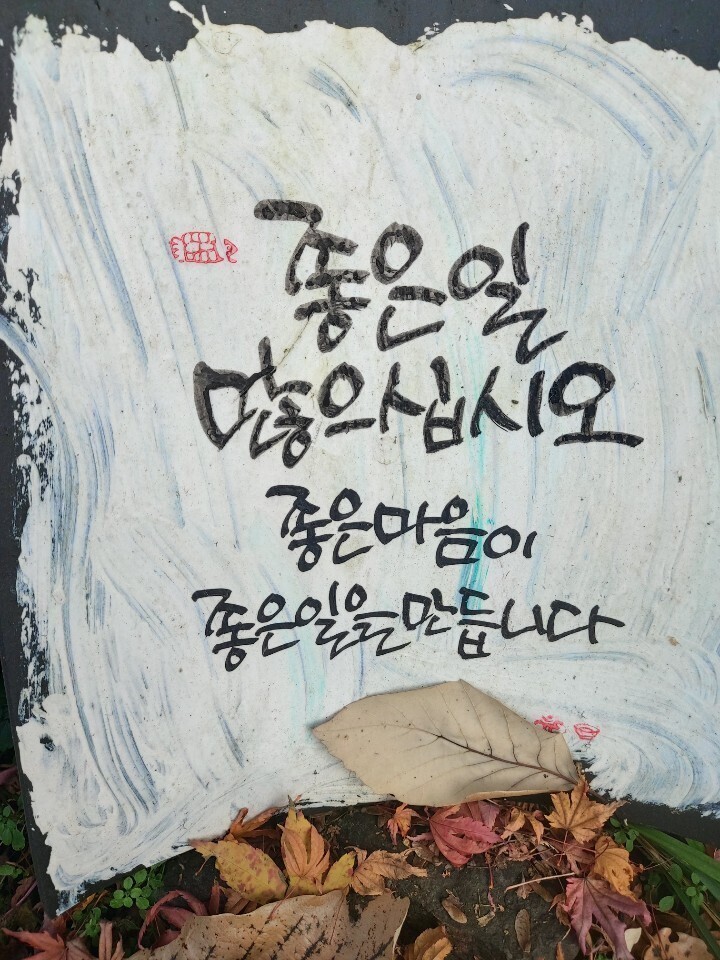 좋은일
많으십시오
좋은마음이
좋은일을만듭니다